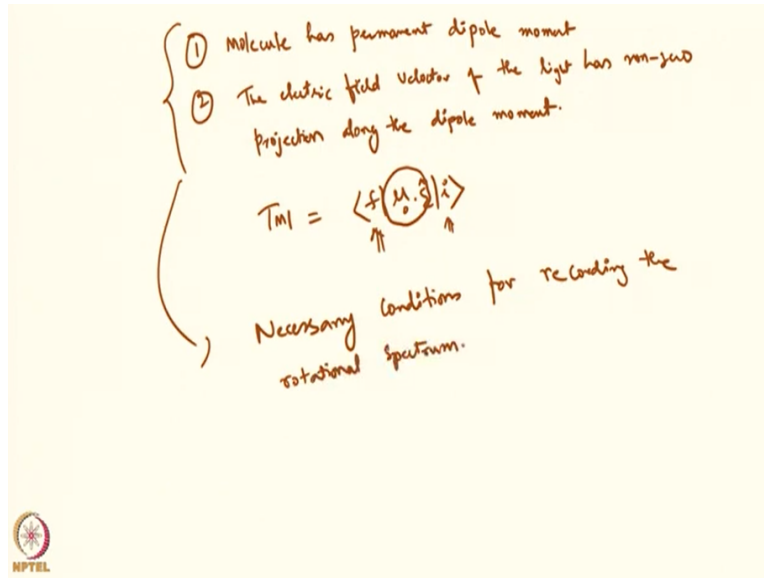 ① Molecule has permanent dipole moment
② The electric field vector of the light has non-zero
projection along the dipole moment.
TMI = ⟨f|μ₀.ε̂|i⟩
Necessary conditions for recording the
rotational spectrum.
NPTEL